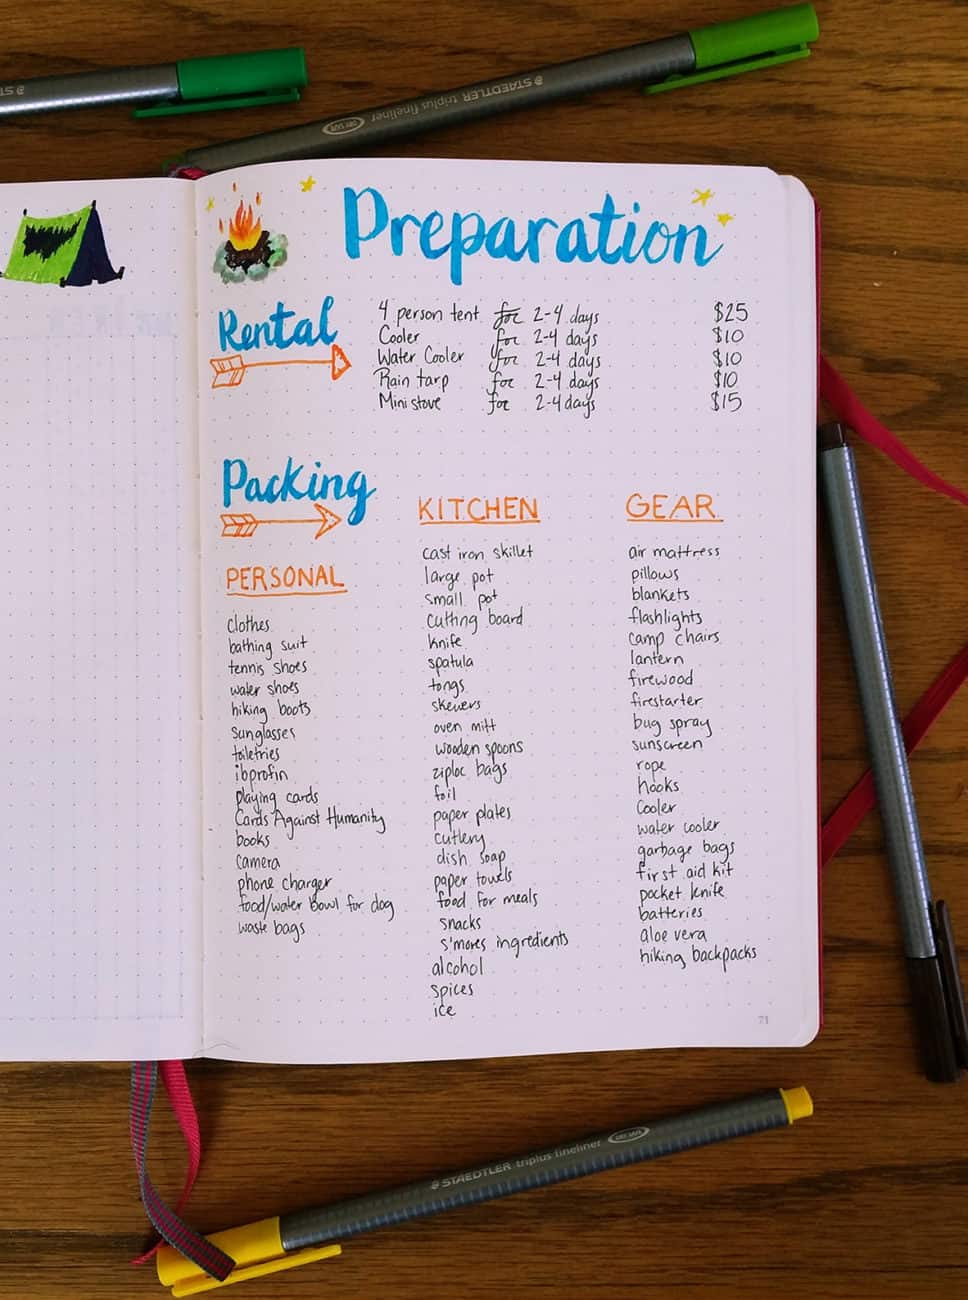 STAEDTLER triplus fineliner DRY SAFE
Preparation
Rental
4 person tent for 2-4 days $25
Cooler for 2-4 days $10
Water Cooler for 2-4 days $10
Rain tarp for 2-4 days $10
Mini stove for 2-4 days $15
Packing
PERSONAL
clothes
bathing suit
tennis shoes
water shoes
hiking boots
sunglasses
toiletries
ibprofin
playing cards
Cards Against Humanity
books
camera
phone charger
food/water bowl for dog
waste bags
KITCHEN
cast iron skillet
large pot
small pot
cutting board
knife
spatula
tongs
skewers
oven mitt
wooden spoons
ziploc bags
foil
paper plates
cutlery
dish soap
paper towels
food for meals
snacks
s'mores ingredients
alcohol
spices
ice
GEAR
air mattress
pillows
blankets
flashlights
camp chairs
lantern
firewood
firestarter
bug spray
sunscreen
rope
hooks
cooler
water cooler
garbage bags
first aid kit
pocket knife
batteries
aloe vera
hiking backpacks
71
STAEDTLER triplus fineliner DRY SAFE